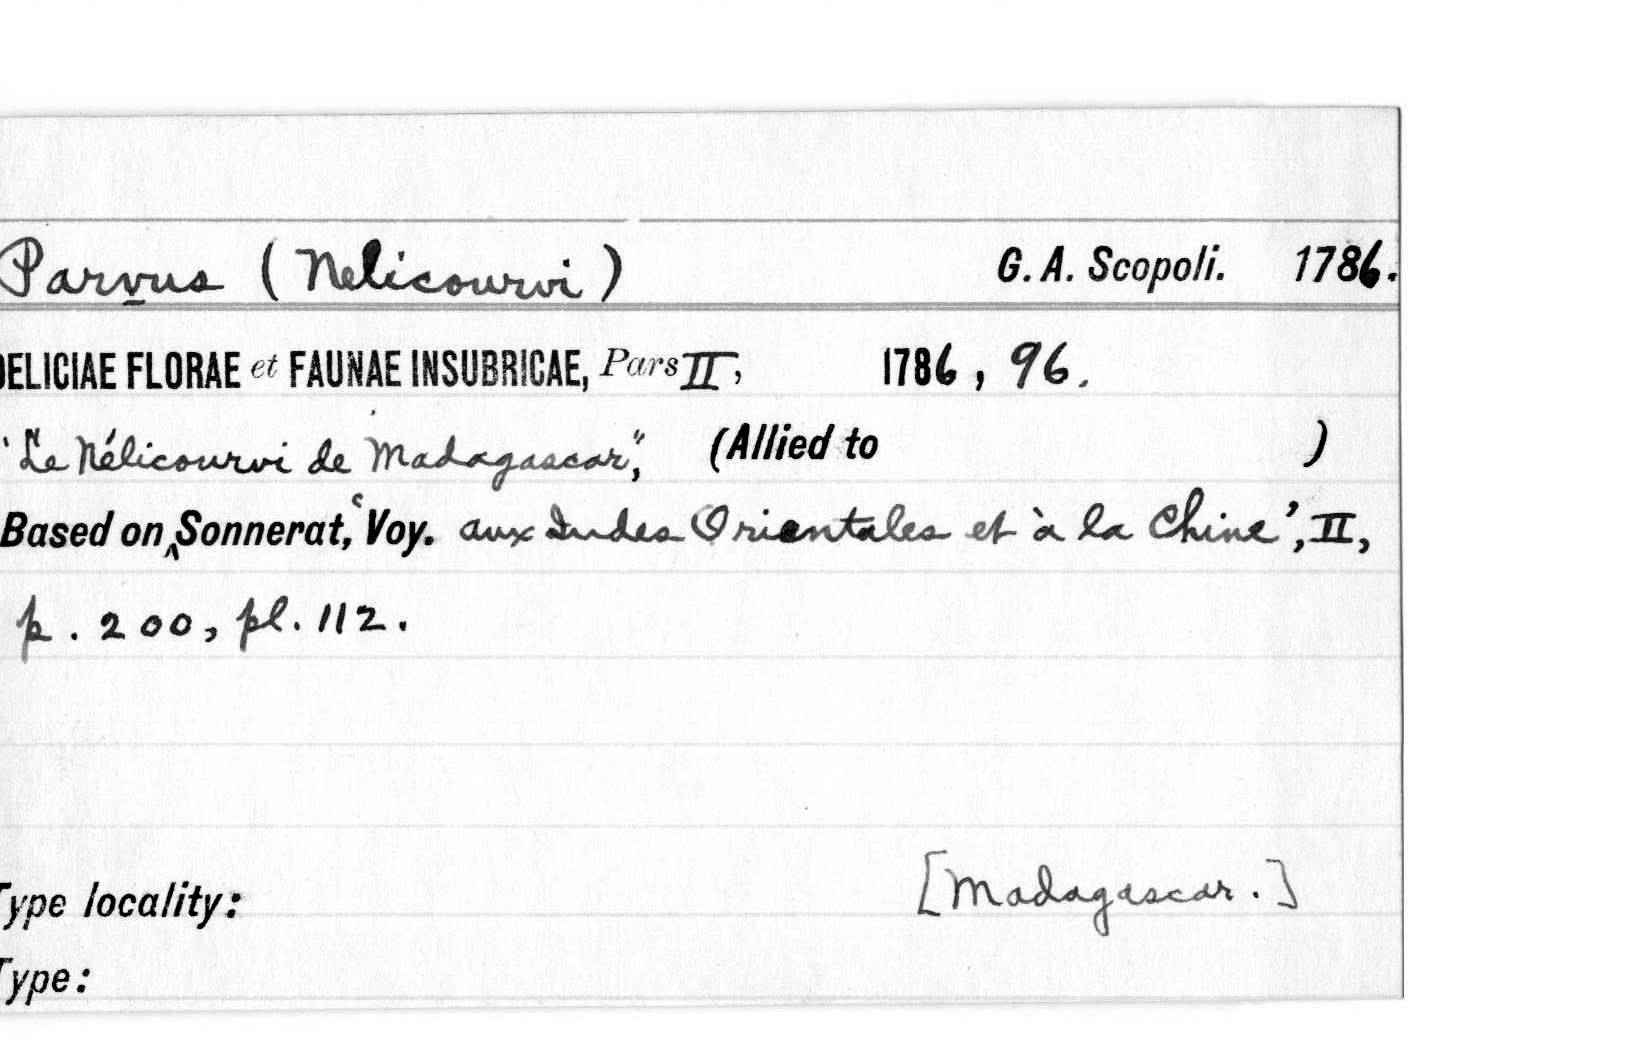 Parvus (Nelicourvi) G. A. Scopoli. 1786.
DELICIAE FLORAE et FAUNAE INSUBRICAE, Pars II, 1786, 96.
"Le Nélicourvi de Madagascar", (Allied to )
Based on ‸ Sonnerat, 'Voy. aux Indes Orientales et à la Chine', II,
p. 200, pl. 112.
Type locality: [Madagascar.]
Type: